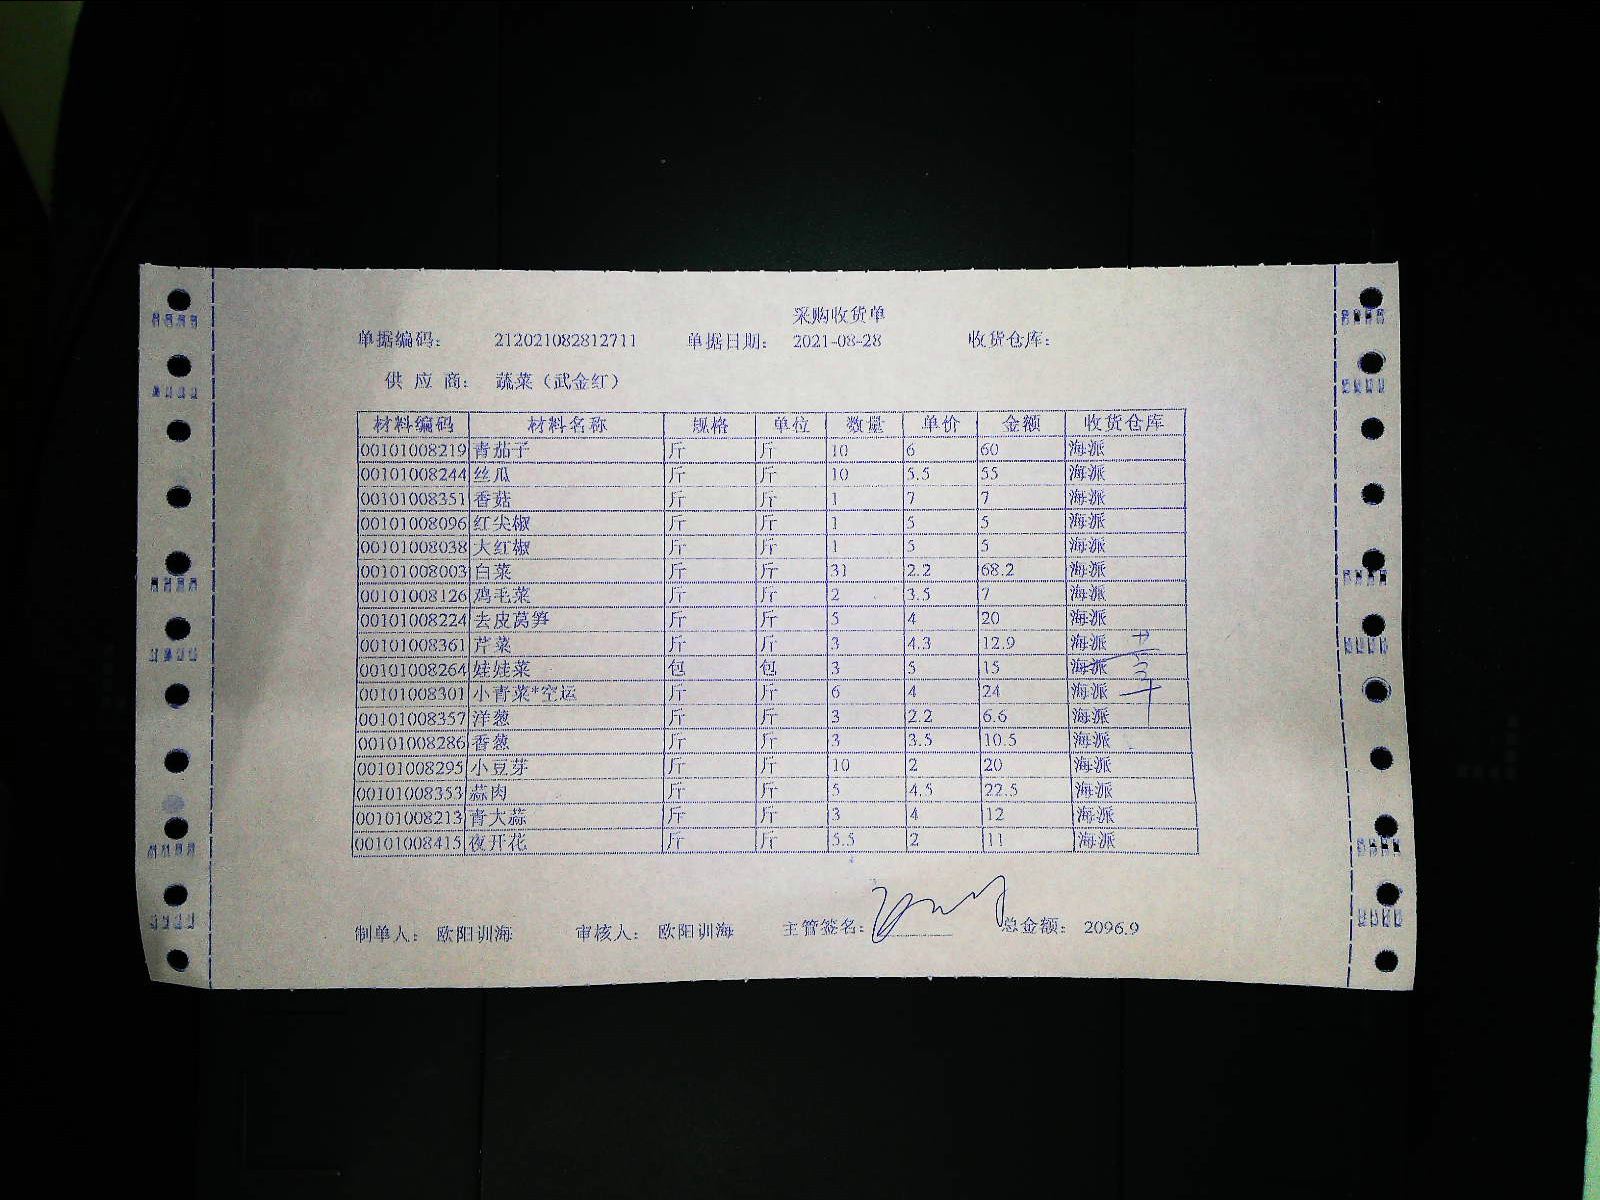 采购收货单
单据编码： 212021082812711 单据日期： 2021-08-28 收货仓库：
供 应 商： 蔬菜（武金红）
材料编码 材料名称 规格 单位 数量 单价 金额 收货仓库
00101008219 青茄子 斤 斤 10 6 60 海派
00101008244 丝瓜 斤 斤 10 5.5 55 海派
00101008351 香菇 斤 斤 1 7 7 海派
00101008096 红尖椒 斤 斤 1 5 5 海派
00101008038 大红椒 斤 斤 1 5 5 海派
00101008003 白菜 斤 斤 31 2.2 68.2 海派
00101008126 鸡毛菜 斤 斤 2 3.5 7 海派
00101008224 去皮莴笋 斤 斤 5 4 20 海派
00101008361 芹菜 斤 斤 3 4.3 12.9 海派
00101008264 娃娃菜 包 包 3 5 15 海派
00101008301 小青菜*空运 斤 斤 6 4 24 海派
00101008357 洋葱 斤 斤 3 2.2 6.6 海派
00101008286 香葱 斤 斤 3 3.5 10.5 海派
00101008295 小豆芽 斤 斤 10 2 20 海派
00101008353 蒜肉 斤 斤 5 4.5 22.5 海派
00101008213 青大蒜 斤 斤 3 4 12 海派
00101008415 夜开花 斤 斤 5.5 2 11 海派
制单人： 欧阳训海 审核人： 欧阳训海 主管签名： 总金额： 2096.9